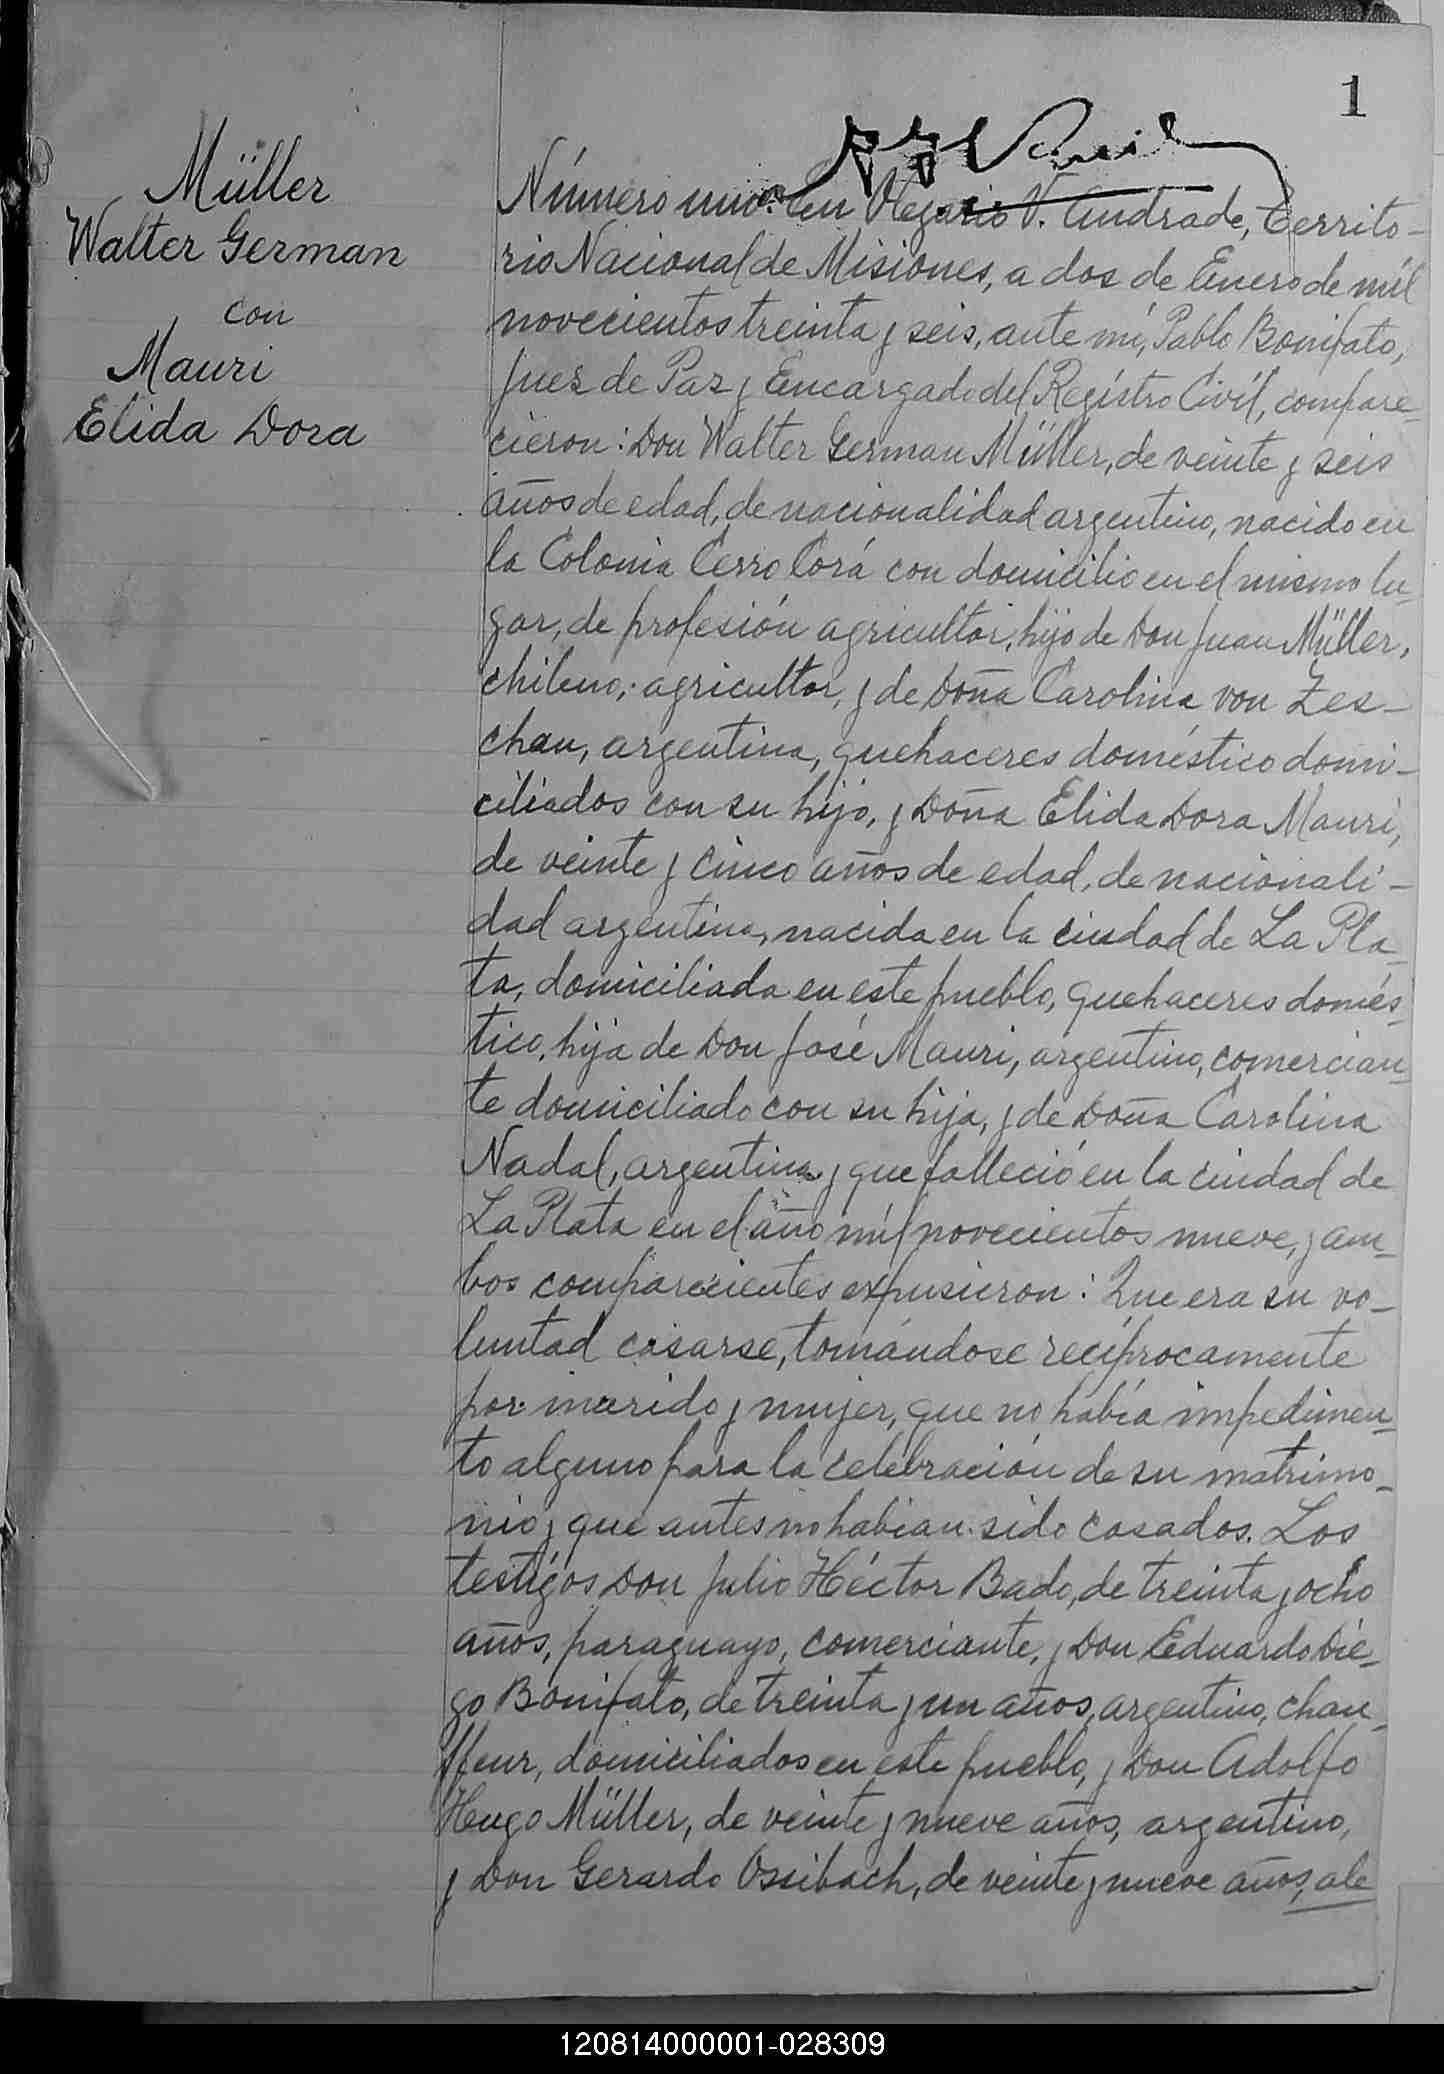 1
Müller
Walter German
con
Mauri
Elida Dora
Número uno: En Olegario V. Andrade, Territo-
rio Nacional de Misiones, a dos de Enero de mil
novecientos treinta y seis, ante mí, Pablo Bonifato,
Juez de Paz y Encargado del Regístro Civíl, compare-
cieron: Don Walter German Müller, de veinte y seis
años de edad, de nacionalidad argentino, nacido en
la Colonia Cerro Corá con domicilio en el mismo lu-
gar, de profesión agricultor, hijo de Don Juan Müller,
chileno, agricultor, y de Doña Carolina von Zes-
chau, argentina, quehaceres doméstico domi-
ciliados con su hijo, y Doña Elida Dora Mauri,
de veinte y cinco años de edad, de nacionali-
dad argentina, nacida en la ciudad de La Pla-
ta, domiciliada en este pueblo, quehaceres domés-
tico, hija de Don José Mauri, argentino, comercian-
te domiciliado con su hija, y de Doña Carolina
Nadal, argentina y que falleció en la ciudad de
La Plata en el año mil novecientos nueve, y am-
bos comparecientes expusieron: Que era su vo-
luntad casarse, tomándose recíprocamente
por marido y mujer, que no había impedimen-
to alguno para la celebración de su matrimo-
nio y que antes no habian sido casados. Los
testígos Don Julio Héctor Bado, de treinta y ocho
años, paraguayo, comerciante, y Don Eduardo Die-
go Bonifato, de treinta y un años, argentino, chau-
ffeur, domiciliados en este pueblo, y Don Adolfo
Hugo Müller, de veinte y nueve años, argentino,
y Don Gerardo Ossibach, de veinte y nueve años, ale
120814000001-028309